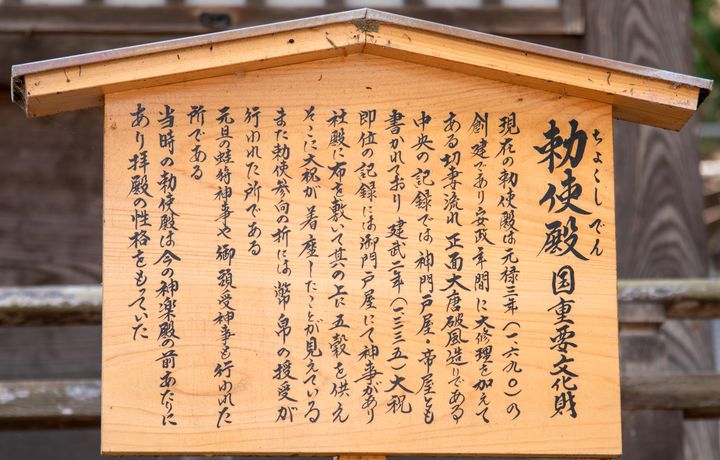 ちょくし でん
勅使殿 国重要文化財
現在の勅使殿は元禄三年(一六九〇)の
創建であり安政年間に大修理を加えて
ある切妻流れ正面大唐破風造りである
中央の記録では神門戸屋・帝屋とも
書かれており 建武二年(一三三五)大祝
即位の記録には御門戸屋にて神事があり
社殿に布を敷いて其の上に五穀を供え
そこに大祝が着座したことが見えている
また勅使参向の折には幣帛の授受が
行われた所である
元旦の蛙狩神事や御頭受神事も行われた
所である
当時の勅使殿は今の神楽殿の前あたりに
あり拝殿の性格をもっていた